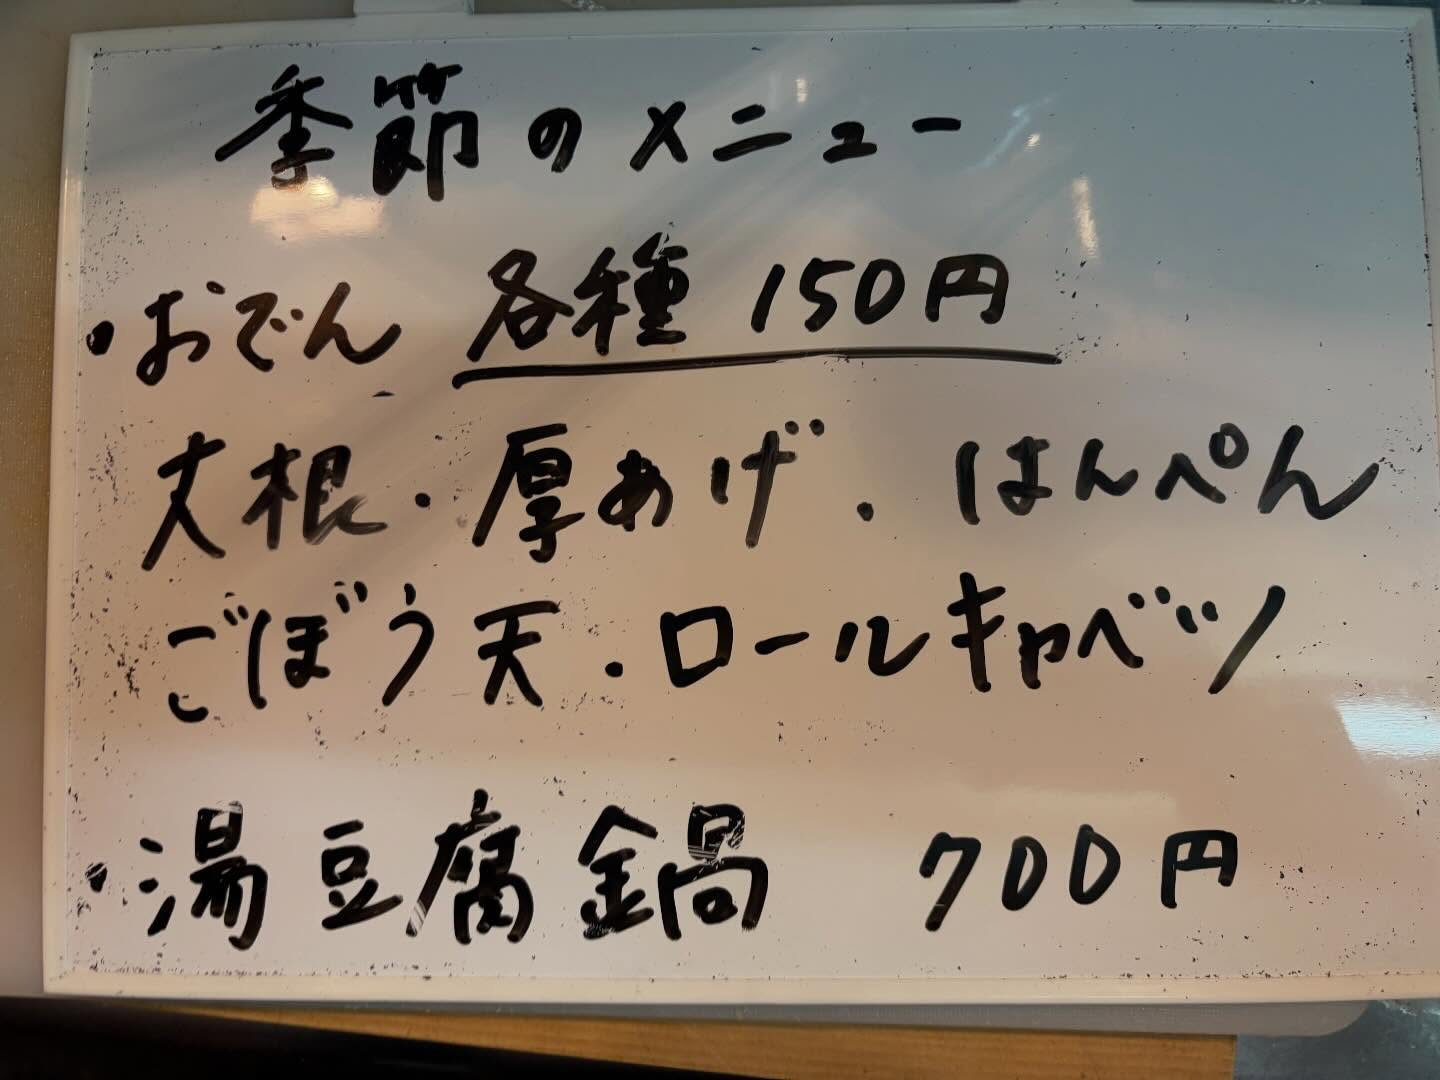 季節のメニュー
・おでん 各種 150円
大根・厚あげ・はんぺん
ごぼう天・ロールキャベツ
・湯豆腐鍋 700円